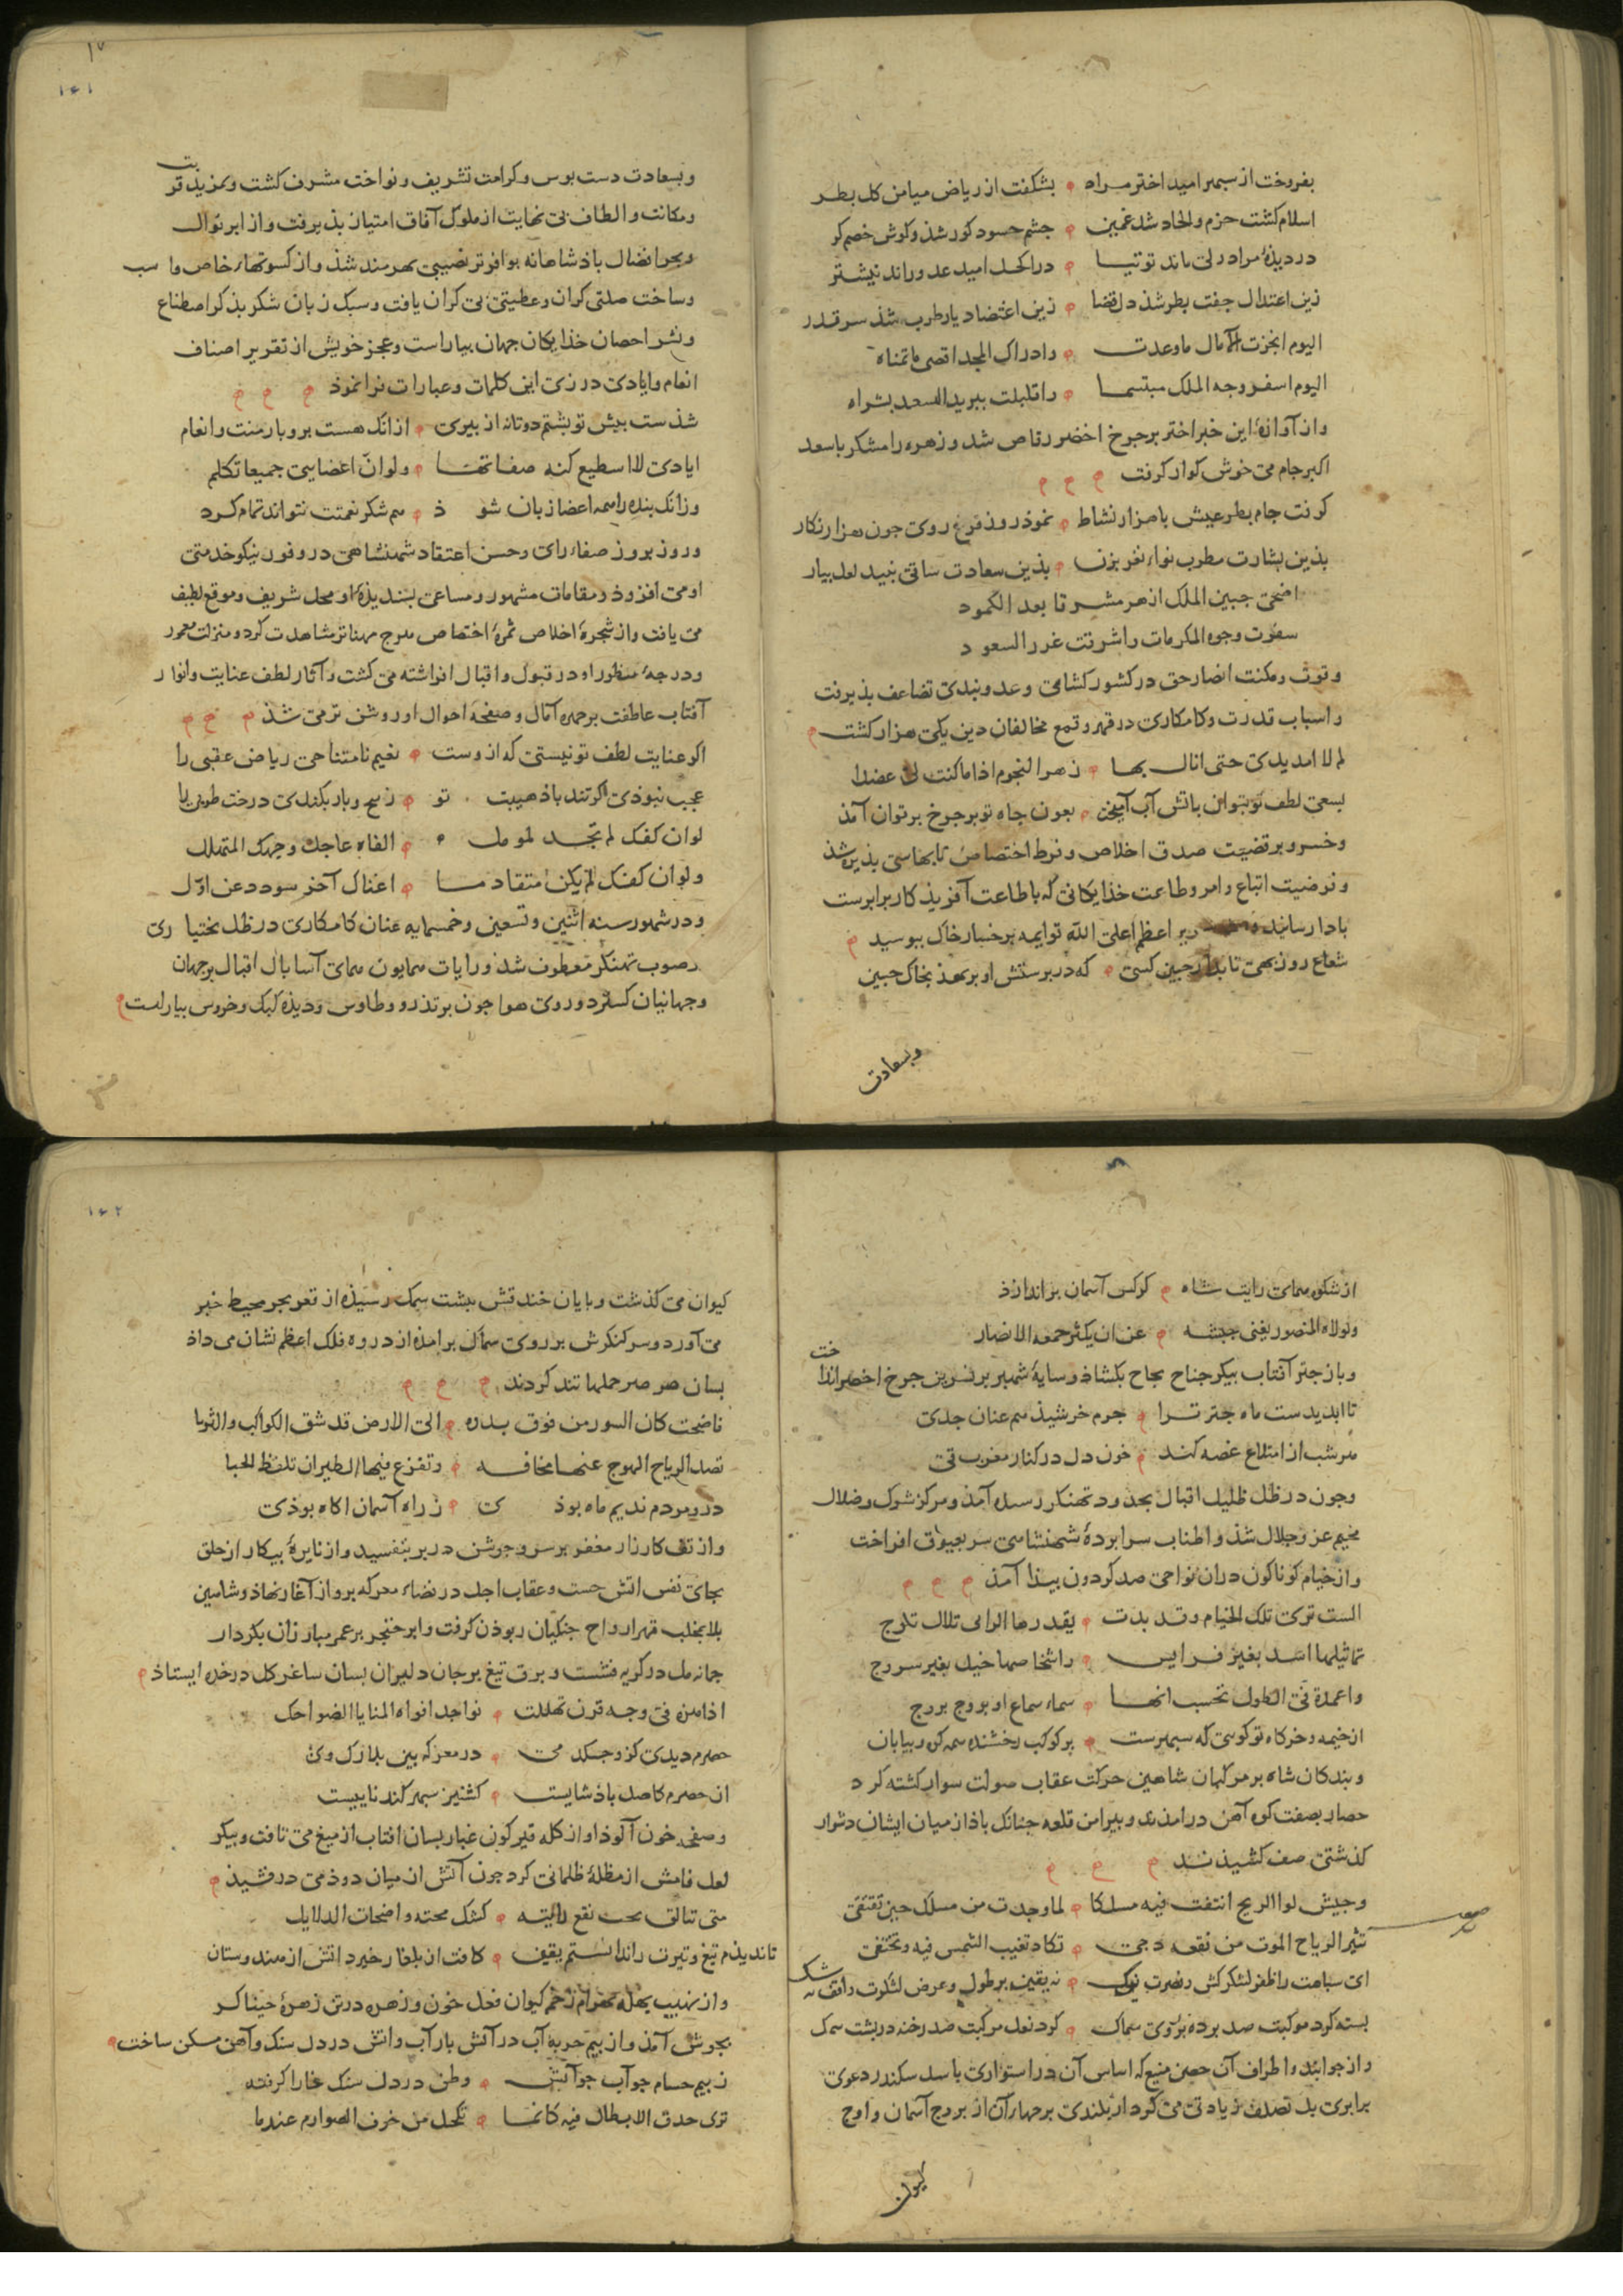 بفروخت از سپهر امید اختر مراد بشکفت از ریاض میامن کل بطر
اسلام کشت خرم و الحاد شد غمین جشم حسود کور شذ و کوش خصم کر
در دیذۀ مراد دلی ماند توتیا در اکحل امید عدو راند نیشتر
زین اعتدال جفت بطر شذ دل قضا زین اعتضاد یار طرب شذ سر قدر
الیوم انجزت الآمال ما وعدت و ادراک المجد اقصی ما تمناه
الیوم اسفر وجه الملک مبتسما و اقبلت ببرید السعد بشراه
و از آوازۀ این خبر اختر بر جرخ اخضر رقاص شد و زهره رامشکر با سعد
اکبر جام می خوش کوار کرفت
کرفت جام بطر عیش با هزار نشاط نموذ روز فرغ روی جون هزار نکار
بذین بشارت مطرب نواء نغز بزن بذین سعادت ساقی نبید لعل بیار
اضحی جبین الملک ازهر مشرقا بعد الکمود
سفرت وجوه المکرمات و اشرقت غرر السعود
و قوت و مکنت انصار حق در کشور کشامی و عدو بندی تضاعف بذیرفت
و اسباب قدرت و کامکاری در قهر و قمع مخالفان دین یکی هزار کشت
لم لا امد یدی حتی انال بها زهر النجوم اذا ما کنت لی عضدا
بسعی لطف تو بتوان باتش آب آمیختن بعون جاه تو بر جرخ برتوان آمذ
و خسرو بر قضیت صدق اخلاص و فرط اختصاص
و فرضیت اتباع اوامر و طاعت خذایکانی که با طاعت آفریذ کار برابرست
اعظم اعلی الله توایمه برخسار خاک ببوسید
شعاع روز بهی تابد از جبین کسی که در برستش او بر نهذ بخاک جبین
وبسعادت
وبسعادت دست بوس و کرامت تشریف و نواخت مشرف کشت و بمزید قربت
و مکانت و الطاف بی نهایت از ملوک آفاق امتیاز بذیرفت و از ابر نوال
و بحر افضال باذشاهانه بوافرتر نصیبی بهرمند شذ و از کسوتهاء خاص و اسب
وساخت صلتی کران و عطیتی بی کران یافت و سبک زبان شکر بذکر اصطناع
و نشر احصان خذایکان جهان بیاراست و عجز خویش از تقریر اصناف
انعام و ایادی در زی این کلمات و عبارات فرا نموذ
شذست بیش تو بشتم دوتا نه از بیری از انک هست برو بار منت و انعام
ایادی لا اسطیع کنه صفاتها ولو ان اعضایی جمیعا تکلم
وزانک بنده را همه اعضا زبان شوذ هم شکر نعمتت نتواند تمام کرد
و روز بروز صفاء رای و حسن اعتقاد شهنشاهی در وفور نیکو خدمتی
او می افزوذ و مقامات مشهور و مساعی بسندیذۀ او محل شریف و موقع لطیف
می یافت و از شجرۀ اخلاص ثمرۀ اختصاص هر جه مهناتر مشاهدت کرد و منزلت معمور
و درجۀ منظور او در قبول و اقبال افراشته می کشت و آثار لطف عنایت و انوار
آفتاب عاطفت بر جهرۀ آمال و صفحۀ احوال او روشن تر می شذ
اکر عنایت لطف تو نیستی که ازوست نعیم نامتناهی ریاض عقبی را
عجب نبوذی اکر تند باذ هیبت تو ز بیخ و بار بکندی درخت طوبی را
لو ان کفک لم تجد لمومل الفاه عاجل وجهک المتهلل
ولو ان کفک لم یکن متقادما اغناک آخر سودد عن اول
و در شهور سنه اثنین و تسعین و خمسمایه عنان کامکاری در ظل بختیاری
بر صوب تهنکر معطوف شذ و رایات همایون همای آسا بال اقبال بر جهان
و جهانیان کسترد و روی هوا جون بر تذرو و طاوس و دیذۀ کبک و خروس بیاراست
از شکوه همای رایت شاه کرکس آسمان بر اندازذ
ولولاه المنصور یغنی جیشه عن ان یکثر جمعه الانصار
و باز جتر آفتاب بیکر جناح نجاح بکشاذ و سایۀ شهپر بر نسرین جرخ اخضر انداخت
تا ابد یدست ماه جتر ترا جرم خرشیذ هم عنان جدی
هر شب از امتلاء غصه کند خون دل در کنار مغرب قی
و جون در ظل ظلیل اقبال بحدود تهنکر رسیده آمذ و مرکز شرک و ضلال
مخیم عز و جلال شذ و اطناب سرابردۀ شهنشاهی سر بعیوق افراخت
و از خیام کوناکون دران نواحی صد کردون بیذا آمذ
الست تری تلک الخیام و قد بدت یقدرها الرائی تلال ثلوج
تماثیلها اسد بغیر فرایس و اشخاصها خیل بغیر سروج
و اعمدة فی الطول تحسب انها سماء سماع او بروج بروج
از خیمه و خرکاه تو کوسی که سپهرست بر کوکب رخشنده همه کوه و بیابان
و بندکان شاه بر مرکبان شاهین حرکت عقاب صولت سوار کشته کرد
حصار بصفت کوه آهن درامذند و بیرامن قلعه جنانک باذ از میان ایشان دشوار
کذشتی صف کشیذند
و جیش لوا الریح انتفت فیه مسلکا لما وجدت من مسلک حین تقتفی
تثیر الریاح الموت من نقعه دجی تکاد تغیب الشمس فیه و تختفی
بسته کرد موکبت صد برده بر روی سماک کرد نعل مرکبت صد رخنه در بشت سمک
و از جوانب و اطراف آن حصن منیع که اساس آن در استواری با سد سکندر دعوی
برابری بل تصلف زیادتی می کرد از بلندی بر جهار آن از بروج آسمان و اوج
کیوان
کیوان می کذشت و بایان خندقش ببشت سمک رسیذه از قعر بحر محیط خبر
می آورد و سر کنکرش بر روی سماک برامذه از دروه فلک اعظم نشان می داذ
بسان صرصر حملها تند کردند
فاضحت کان السور من فوق بدره الی الارض قد شق الکواکب والتربا
تصد الریاح الهوج عنها مخافه و تفزع فیها الطیر ان تلقط الحبا
درو مردم ندیم ماه بوذی ز راه آسمان اکاه بوذی
و از تف کارزار مغفر بر سر و جوشن در بر بتفسید و از نایرۀ بیکار از حلق
بجای نفس اتش جست و عقاب اجل در فضاء معرکه برواز آغاز نهاذ و شاهین
بلا بمخلب قهر ارواح جنکیان ربوذن کرفت و ابر خنجر بر عمر مبارزان بکردار
جمانه مل در کریه نشست و برق تیغ بر جان دلیران بسان ساغر کل در خنده ایستاذ
اذا اهتز فی وجه قرن تهللت نواجذ افواه المنایا الضواحک
ان حصرم کاصل باذشایست کشنیز سپهر کند ناییست
و صفحه خون آلوذ او از کله قیر کون غبار بسان افتاب از میغ می تافت و بیکر
لعل فامش از مظلۀ ظلمانی کرد جون آتش از میان دوذ می درفشیذ
متی تتالق تحت نقع رایته کشک محته واضحات الدلایل
تا ندیذم تیغ و تیرت را ندانستم یقین کافت از بلغار خیزد اتش از هندوستان
و از نهیب بهله بهرام زخم کیوان فعل خون و زهره در تن زهرۀ خنیاکر
بجوش آمذ و از بیم حربه آب در آتش بار آب و اتش در دل سنک و آهن مسکن ساخت
ز بیم حسام جو آب جو آتش وطن در دل سنک خارا کرفته
تری حدق الابطال فیه کانما تکحل من خرف الصوارم عندما